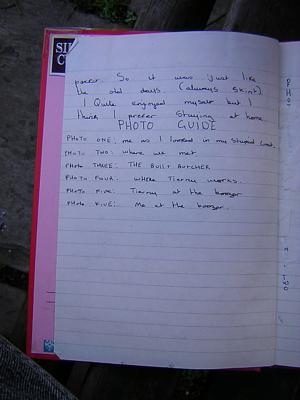 SI
C
poorer. So it was just like
the old days. (always skint).
I Quite enjoyed myself but I
think I prefer staying at home
PHOTO GUIDE
PHOTO ONE: me as I looked in my stupid coat.
PHOTO TWO: where we met
PHOTO THREE: THE BUSY BUTCHER
PHOTO FOUR: WHERE Tierny works.
PHOTO FIVE: Tierny at the boozer
PHOTO FIVE: Me at the boozer.
P
H
O